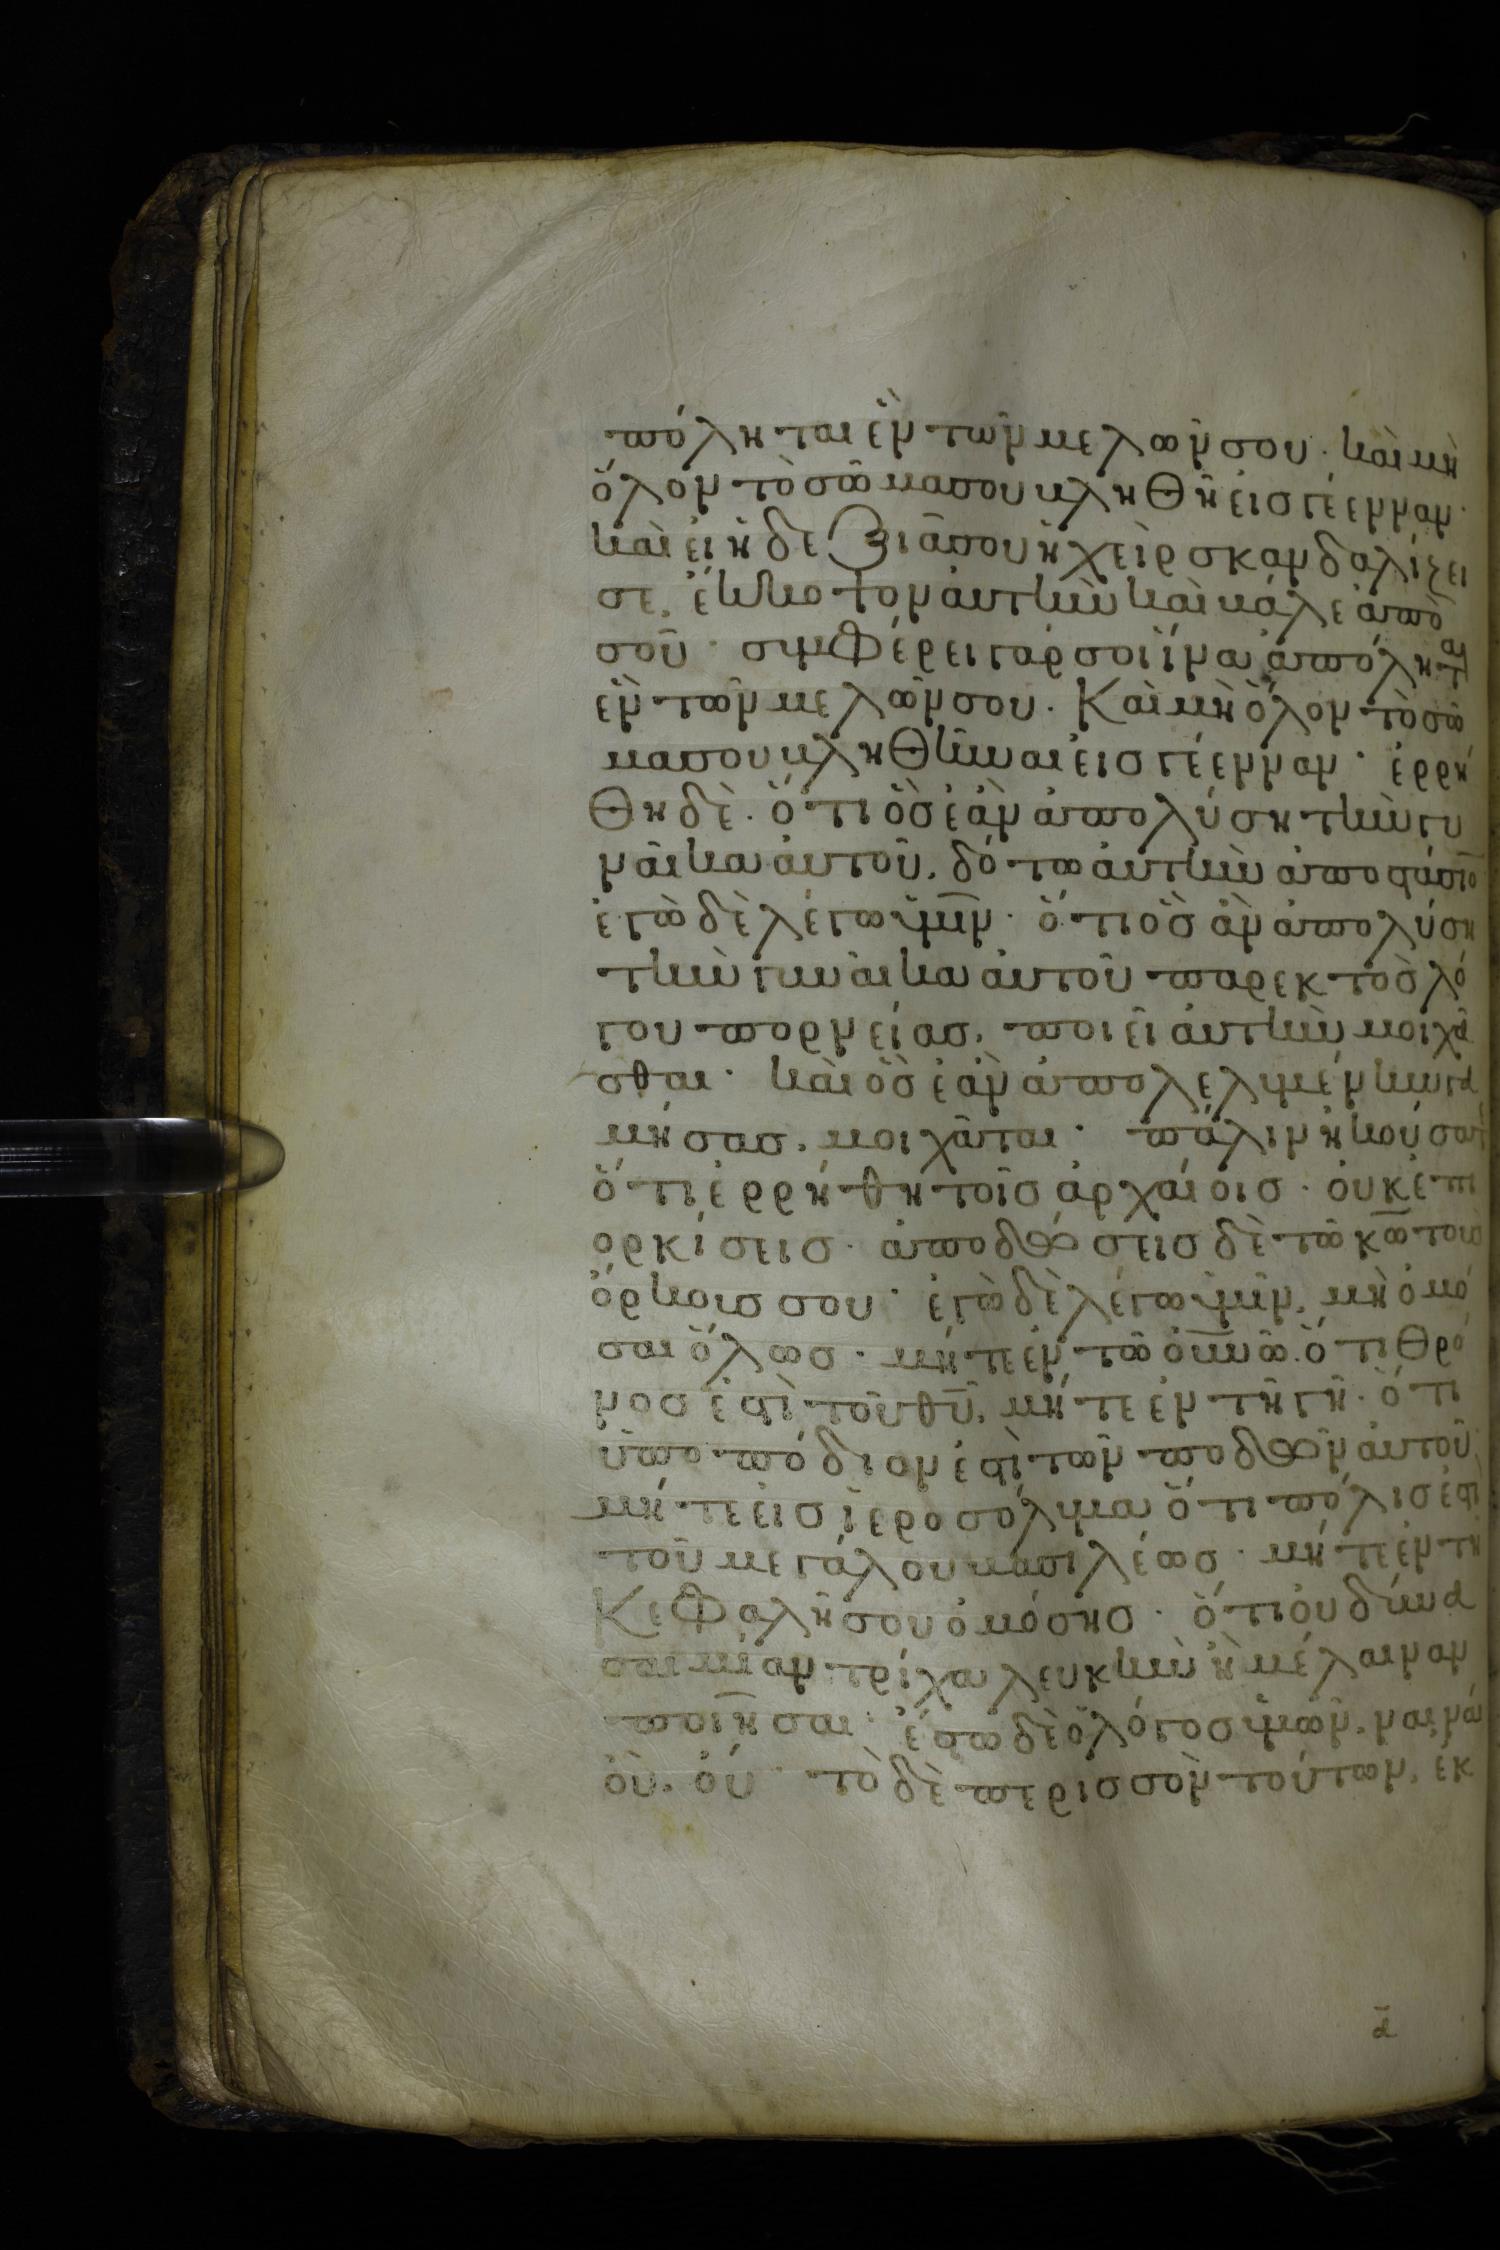 πόληται ἓν τῶν μελῶν σου· καὶ μὴ
ὅλον τὸ σῶμα σου βληθῆ εἰς γέενναν·
καὶ εἰ ἡ δεξιά σου χεὶρ σκανδαλίζει
σε, ἔκκοψον ἀυτὴν καὶ βάλε ἀπὸ
σοῦ· συμφέρει γάρ σοι ἵνα ἀπόληται
ἓν τῶν μελῶν σου. Καὶ μὴ ὅλον τὸ σῶ
μα σου βληθῆναι εἰς γέενναν· ἐρρή
θη δὲ· ὅτι ὃς ἐὰν ἀπολύση τὴν γυ
ναῖκα ἀυτοῦ, δότω ἀυτὴν ἀποστάσιο
ἐγὼ δὲ λέγω ὑμῖν· ὅτι ὃς ἂν ἀπολύση
τὴν γυναῖκα ἀυτοῦ παρεκτὸς λό
γου πορνείας, ποιεῖ ἀυτὴν μοιχᾶ
σθαι· καὶ ὃς ἐὰν ἀπολελυμένην γα
μήσας, μοιχᾶται· πάλιν ἠκούσατε
ὅτι ἐρρήθη τοῖς ἀρχαίοις· ὀυκ ἐπι
ορκίσεις· ἀποδώσεις δὲ τῶ κ̅ω̅ τοὺς
ὅρκους σου· ἐγὼ δὲ λέγω ὑμῖν, μὴ ὀμό
σαι ὅλως· μήτε ἐν τῶ ὀυ̅νῶ̅· ὅτι θρό
νος ἐστὶ τοῦ θ̅υ̅, μήτε ἐν τῆ γῆ· ὅτι
ὑποπόδιον ἐστὶ τῶν ποδῶν ἀυτοῦ
μήτε εἰς ἱεροσόλυμα ὅτι πόλις ἐστὶ
τοῦ μεγάλου βασιλέως· μήτε ἐν τῆ
Κεφαλῆ σου ὀμόσης· ὅτι ὀυ δύνα
σαι μίαν τρίχα λευκὴν ἢ μέλαιναν
ποιῆσαι· ἔστω δὲ ὁ λόγος ὑμῶν, ναὶ ναί
ὀὺ, ὀύ· τὸ δὲ περισσὸν τούτων, ἐκ
α̅